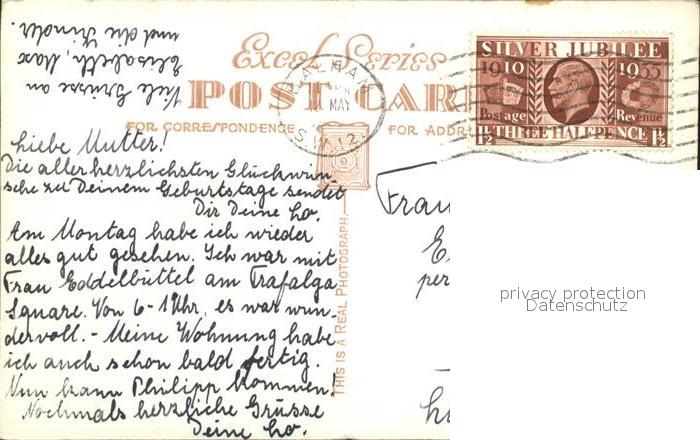 Viele Grüsse an
Elisabeth, Max
und die Kinder.
Excel Series
POST CAR
FOR CORRESPONDENCE
FOR ADDR
BALHAM
MAY
S.W.12
SILVER JUBILEE
1910 1935
Postage Revenue
1½ THREE HALFPENCE 1½
Liebe Mutter!
Die allerherzlichsten Glückwün
sche zu Deinem Geburtstage sendet
Dir Deine Lo.
Am Montag habe ich wieder
alles gut gesehen. Ich war mit
Frau Eddelbüttel am Trafalga
Square. Von 6-1 Uhr, es war wun-
dervoll. - Meine Wohnung habe
ich auch schon bald fertig.
Nun kann Philipp kommen!
Nochmals herzliche Grüsse
Deine Lo.
THIS IS A REAL PHOTOGRAPH.
Frau
E
per
privacy protection
Datenschutz